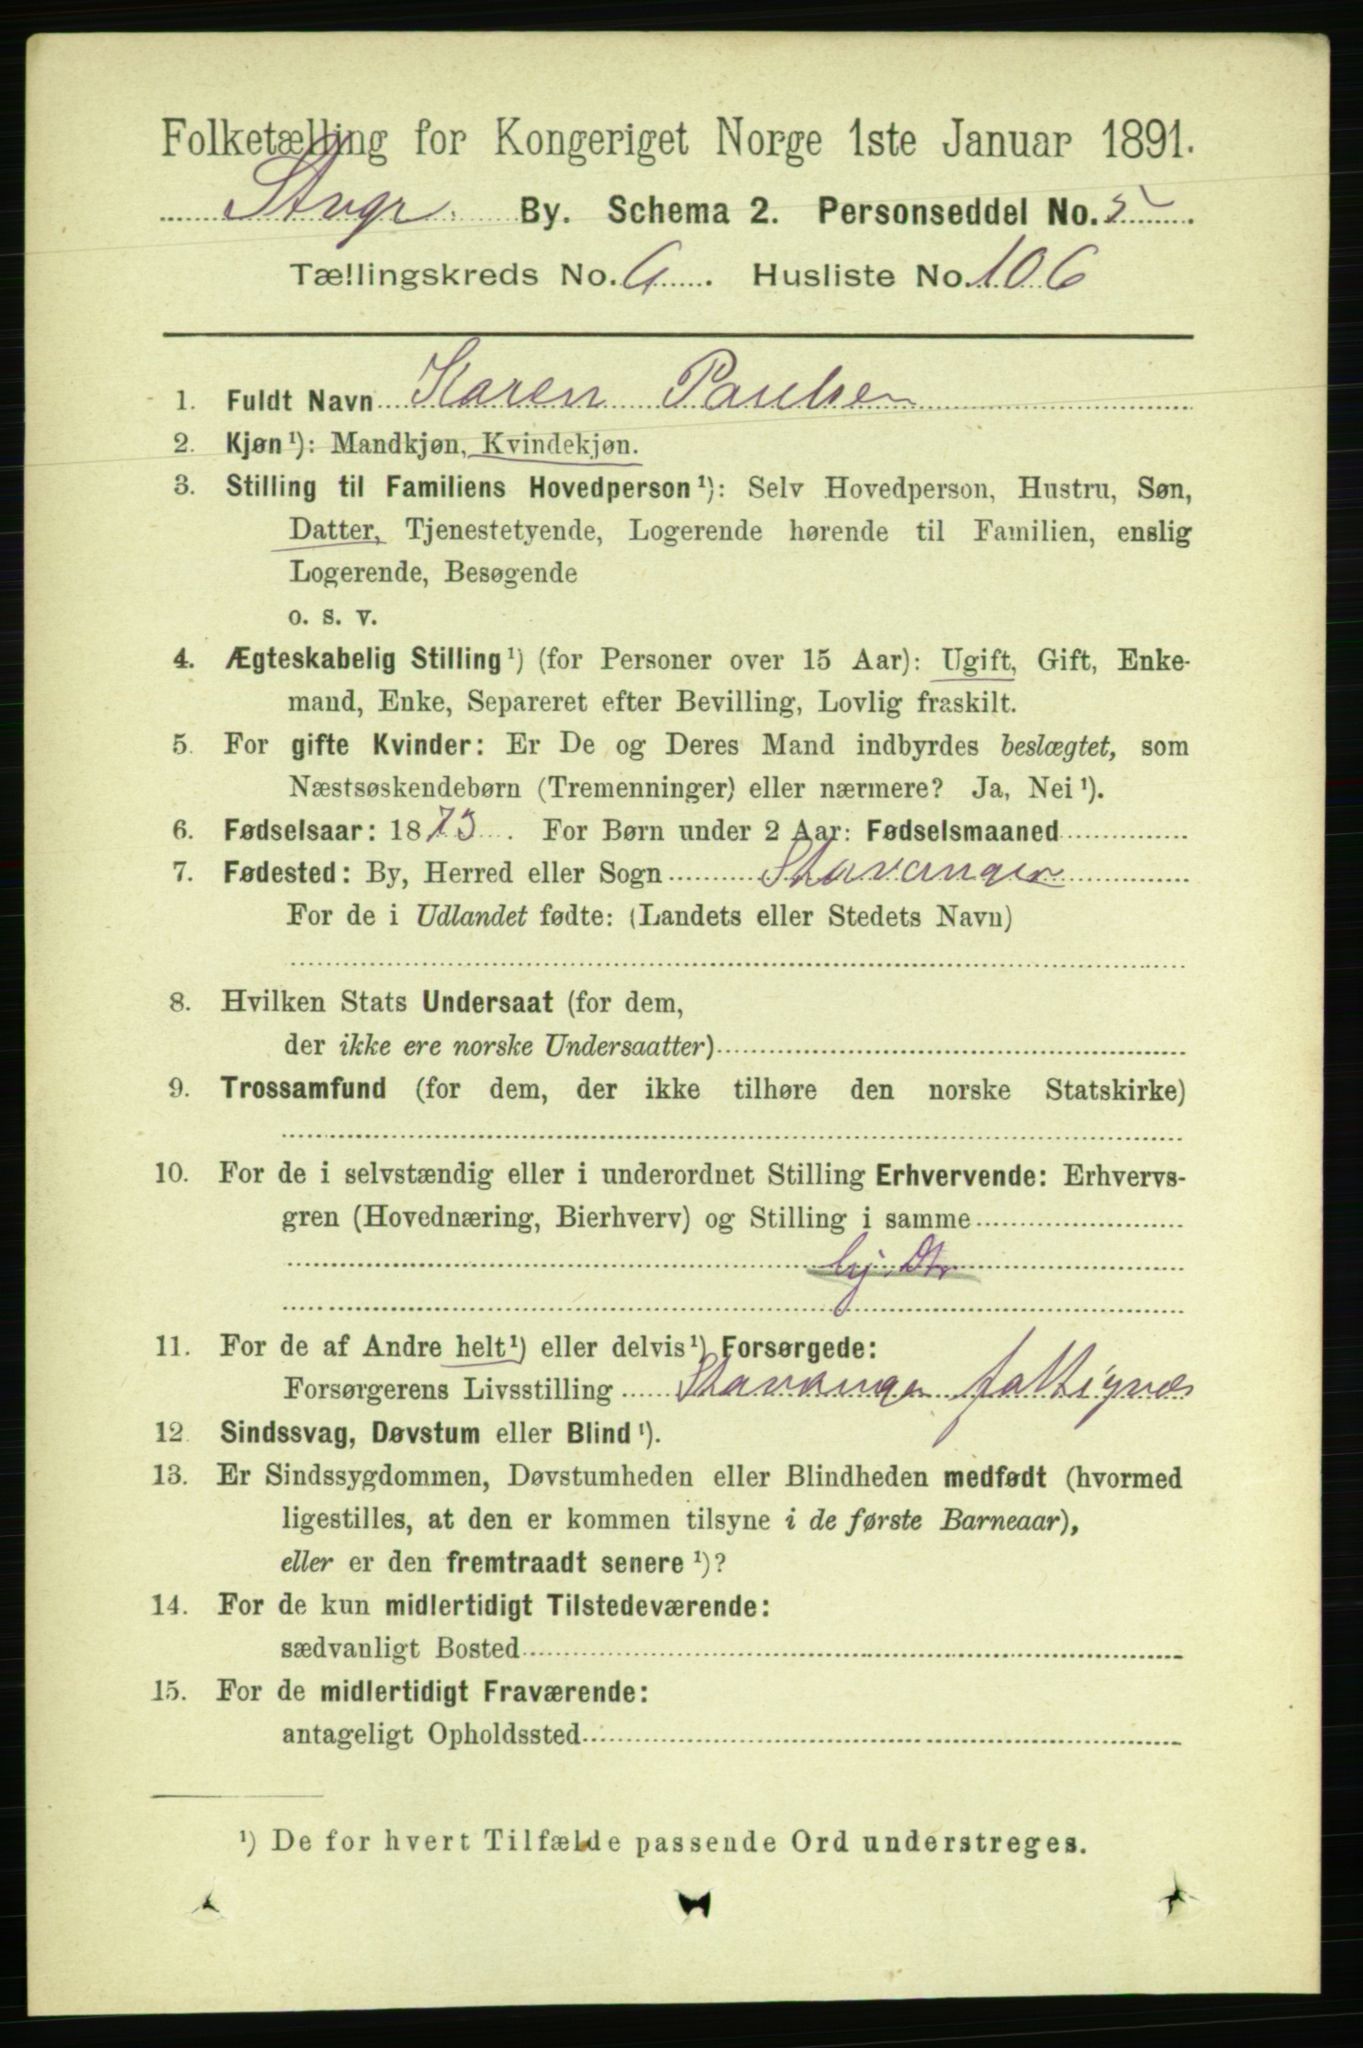 Folketælling for Kongeriget Norge 1ste Januar 1891.
Stvgr. By. Schema 2. Personseddel No. 5
Tællingskreds No. 6. Husliste No. 106
1. Fuldt Navn Karen Paulsen
2. Kjøn ¹): Mandkjøn, Kvindekjøn.
3. Stilling til Familiens Hovedperson ¹): Selv Hovedperson, Hustru, Søn,
Datter, Tjenestetyende, Logerende hørende til Familien, enslig
Logerende, Besøgende
o. s. v.
4. Ægteskabelig Stilling ¹) (for Personer over 15 Aar): Ugift, Gift, Enke-
mand, Enke, Separeret efter Bevilling, Lovlig fraskilt.
5. For gifte Kvinder: Er De og Deres Mand indbyrdes beslægtet, som
Næstsøskendebørn (Tremenninger) eller nærmere? Ja, Nei ¹).
6. Fødselsaar: 1873. For Børn under 2 Aar: Fødselsmaaned
7. Fødested: By, Herred eller Sogn Stavanger
For de i Udlandet fødte: (Landets eller Stedets Navn)
8. Hvilken Stats Undersaat (for dem,
der ikke ere norske Undersaatter)
9. Trossamfund (for dem, der ikke tilhøre den norske Statskirke)
10. For de i selvstændig eller i underordnet Stilling Erhvervende: Erhvervs-
gren (Hovednæring, Bierhverv) og Stilling i samme
11. For de af Andre helt ¹) eller delvis ¹) Forsørgede:
Forsørgerens Livsstilling Stavanger fattigvæs
12. Sindssvag, Døvstum eller Blind ¹).
13. Er Sindssygdommen, Døvstumheden eller Blindheden medfødt (hvormed
ligestilles, at den er kommen tilsyne i de første Barneaar),
eller er den fremtraadt senere ¹)?
14. For de kun midlertidigt Tilstedeværende:
sædvanligt Bosted
15. For de midlertidigt Fraværende:
antageligt Opholdssted
¹) De for hvert Tilfælde passende Ord understreges.